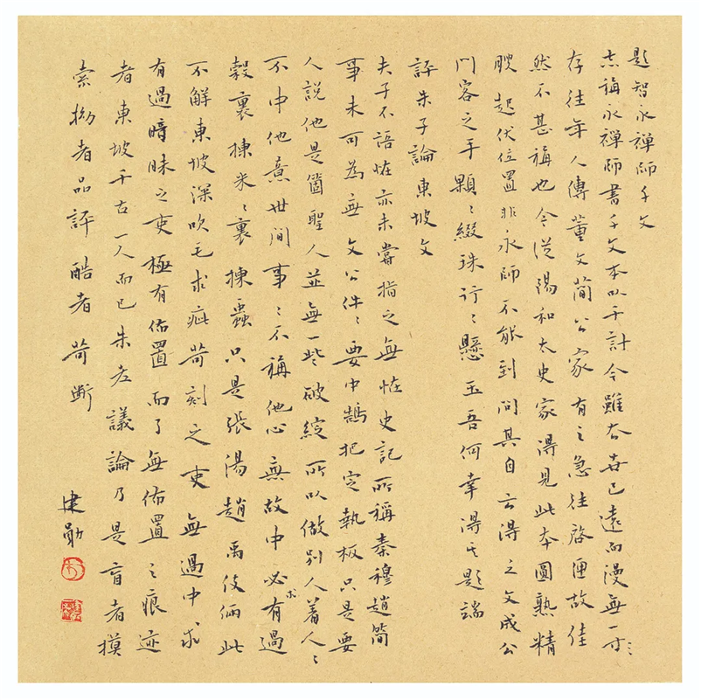 題智永禪師千文
志稱永禪師書千文本以千計今雖去世已遠而漫無一可
存往年人傳董文簡公家有之急往啓匣故佳
然不甚稱也今從陽和太史家得見此本圓熟精
腴起伏位置非永師不能到問其自云得之文成公
門客之手顆〻綴珠行〻懸玉吾何幸得其題端
評朱子論東坡文
夫子不語怪亦未嘗指之無怪史記所稱秦穆趙簡
事未可為無文公件〻要中鵠把定執板只是要
人說他是箇聖人並無一些破綻所以做別人着人〻
不中他意世間事〻不稱他心無故中必求有過
穀裏揀米〻裏揀蟲只是張湯趙禹伎倆此
不解東坡深吹毛求疵苛刻之吏無過中求
有過暗昧之吏極有佈置而了無佈置〻痕迹
者東坡千古一人而已朱老議論乃是盲者摸
索拗者品評酷者苛斷
建勛